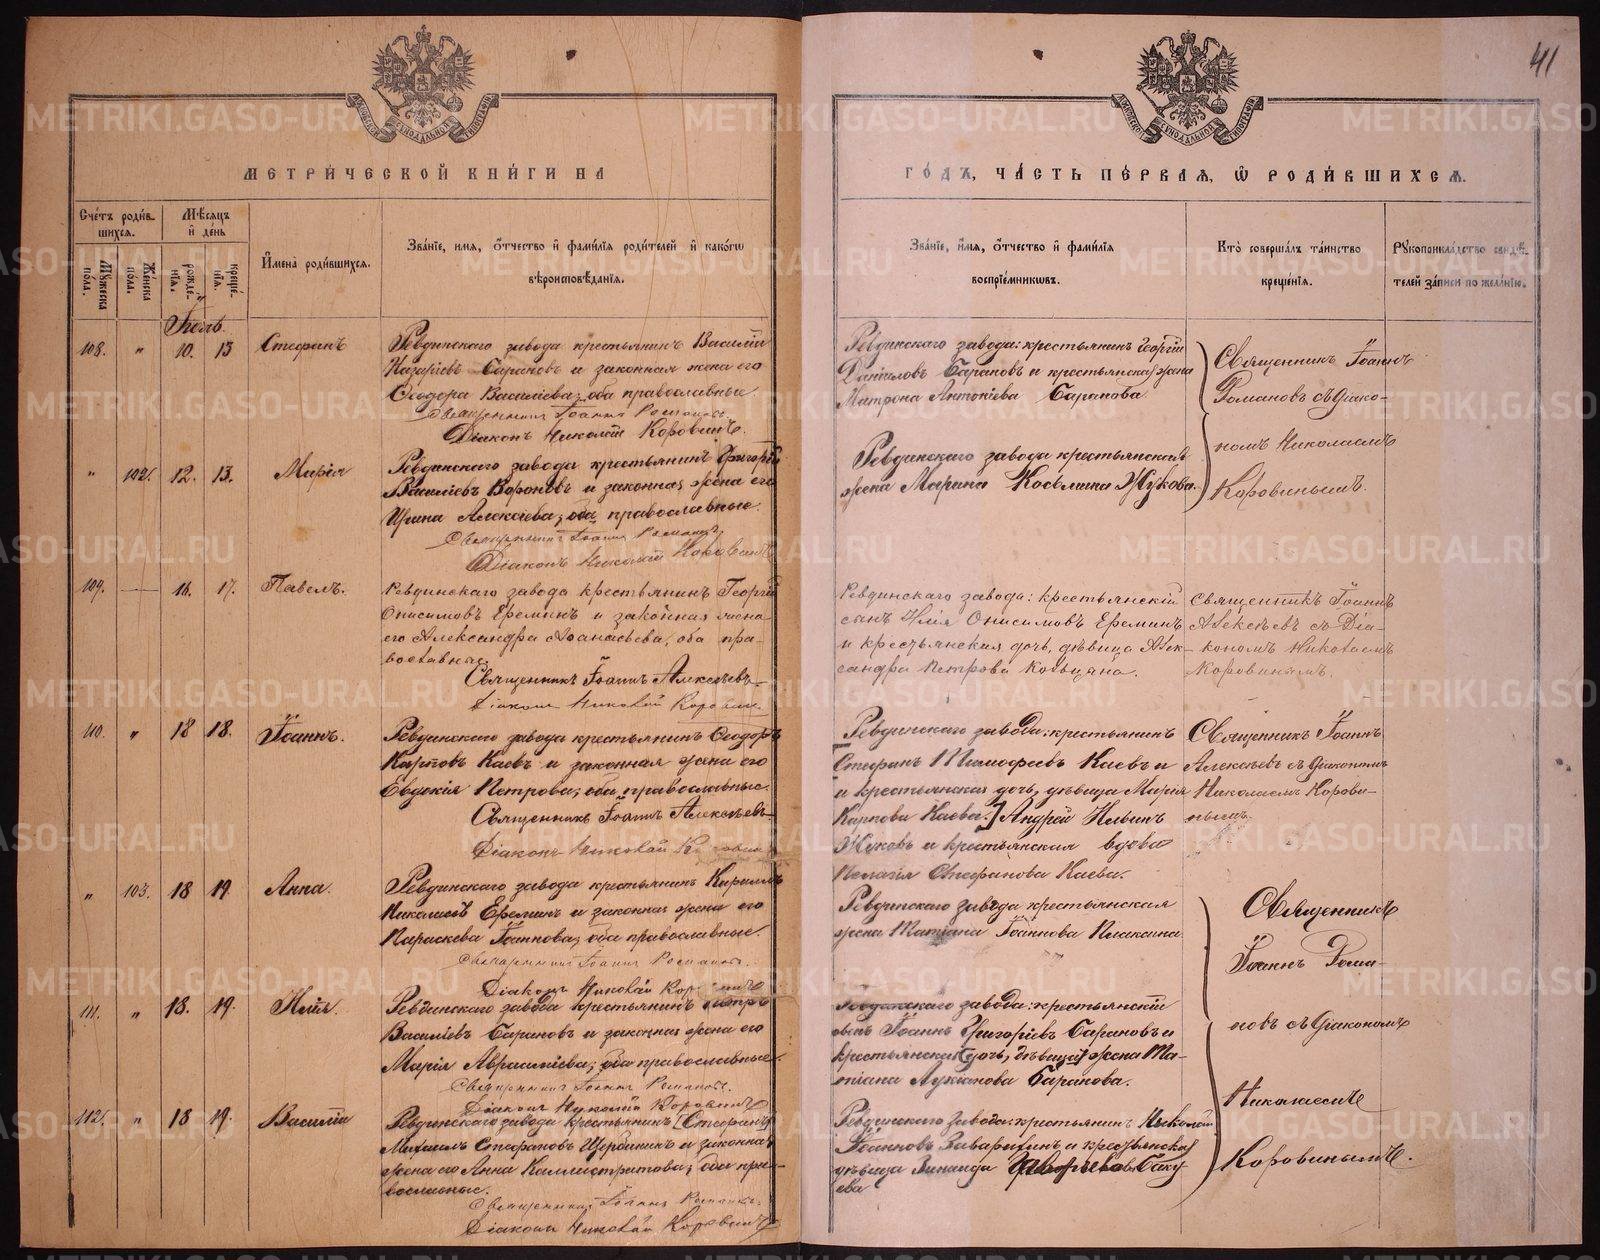 41
МОСКОВСКОЙ СѴНОДАЛЬНОЙ ТИПОГРАФІИ
МОСКОВСКОЙ СѴНОДАЛЬНОЙ ТИПОГРАФІИ
МЕТРИ́ЧЕСКОЙ КНИ́ГИ НА
ГО́ДЪ, ЧА́СТЬ ПЕ́РВАѦ, Ѡ РОДИ́ВШИХСѦ.
Сче́тъ роди́в-
шихсѧ.
Мѣ́сѧцъ
и де́нь
Му́жеска по́ла.
Же́нска по́ла.
рожде́-нїѧ.
креще́-нїѧ.
Имена̀ роди́вшихсѧ.
Зва́нїе, имѧ, ѻ҆́тчество и҆ фами́лїѧ роди́телей и҆ како́гѡ
вѣроисповѣ́данїѧ.
Зва́нїе, и҆́мѧ, ѻ҆́тчество и҆ фами́лїѧ
воспрїе́мникѡвъ.
Кто̀ соверша́лъ та́инство
креще́нїѧ.
Рꙋкоприкла́дство свидѣ́-
телей за́писи по жела́нїю.
Іюль.
108. " 10. 13 Стефанъ
Ревдинскаго завода крестьянинъ Василій
Назаріевъ Барановъ и законная жена его
Ѳеодора Васильева, оба православные.
Священникъ Іоаннъ Романовъ.
Діаконъ Николай Коровинъ.
Ревдинскаго завода: крестьянинъ Георгій
Даніиловъ Барановъ и крестьянская жена
Матрона Антоніева Баранова.
Священникъ Іоаннъ
Романовъ съ діако-
номъ Николаемъ
Коровинымъ.
" 102. 12. 13. Марія
Ревдинскаго завода крестьянинъ Григорій
Васильевъ Вороновъ и законная жена его
Ирина Алексѣева, оба православные.
Священникъ Іоаннъ Романовъ.
Діаконъ Николай Коровинъ
Ревдинскаго завода крестьянская
жена Марина Козьмина Жукова.
109. — 16. 17. Павелъ.
Ревдинскаго завода крестьянинъ Георгій
Онисимовъ Ереминъ и законная жена
его Александра Аѳанасьева, оба пра-
вославные.
Священникъ Іоаннъ Алексѣевъ.
Діаконъ Николай Коровинъ.
Ревдинскаго завода: крестьянскій
сынъ Илія Онисимовъ Ереминъ
и крестьянская дочь, дѣвица Алек-
сандра Петрова
Священникъ Іоаннъ
Алексѣевъ съ Діа-
кономъ Николаемъ
Коровинымъ.
110. " 18 18. Іоаннъ.
Ревдинскаго завода крестьянинъ Ѳеодоръ
Карповъ Каевъ и законная жена его
Евдокія Петрова, оба православные.
Священникъ Іоаннъ Алексѣевъ
Діаконъ Николай Коровинъ
Ревдинскаго завода: крестьянинъ
[Стефанъ Тимофеевъ Каевъ и
и крестьянская дочь, дѣвица Марія
Карпова Каева.] Андрей Ильинъ
Жуковъ и крестьянская вдова
Пелагія Стефанова Каева.
Священникъ Іоаннъ
Алексѣевъ съ діакономъ
Николаемъ Корови-
нымъ.
" 103. 18 19. Анна.
Ревдинскаго завода крестьянинъ Кириллъ
Николаевъ Ереминъ и законная жена его
Параскева Іоаннова, оба православные.
Священникъ Іоаннъ Романовъ.
Діаконъ Николай Коровинъ
Ревдинскаго завода крестьянская
жена Татіана Іоаннова Плаксина.
Священникъ
Іоаннъ Рома-
новъ съ діакономъ
Николаемъ
Коровинымъ.
111. " 18. 19. Илія.
Ревдинскаго завода крестьянинъ Петръ
Васильевъ Барановъ и законная жена его
Марія оба православные.
Священникъ Іоаннъ Романовъ.
Діаконъ Николай Коровинъ
Ревдинскаго завода: крестьянскій
сынъ Іоаннъ Григоріевъ Барановъ и
крестьянская [дочь, дѣвица] жена Та-
тіана Лукіанова Баранова.
112. " 18 19. Василій
Ревдинскаго завода крестьянинъ [Стефанъ]
Михаилъ Стефановъ Щербининъ и законная
жена его Анна Каллистратова, оба пра-
вославные.
Священникъ Іоаннъ Романовъ.
Діаконъ Николай Коровинъ
Ревдинскаго завода: крестьянинъ Николай
Іоанновъ и крестьянская
дѣвица Зинаида
METRIKI.GASO-URAL.RU